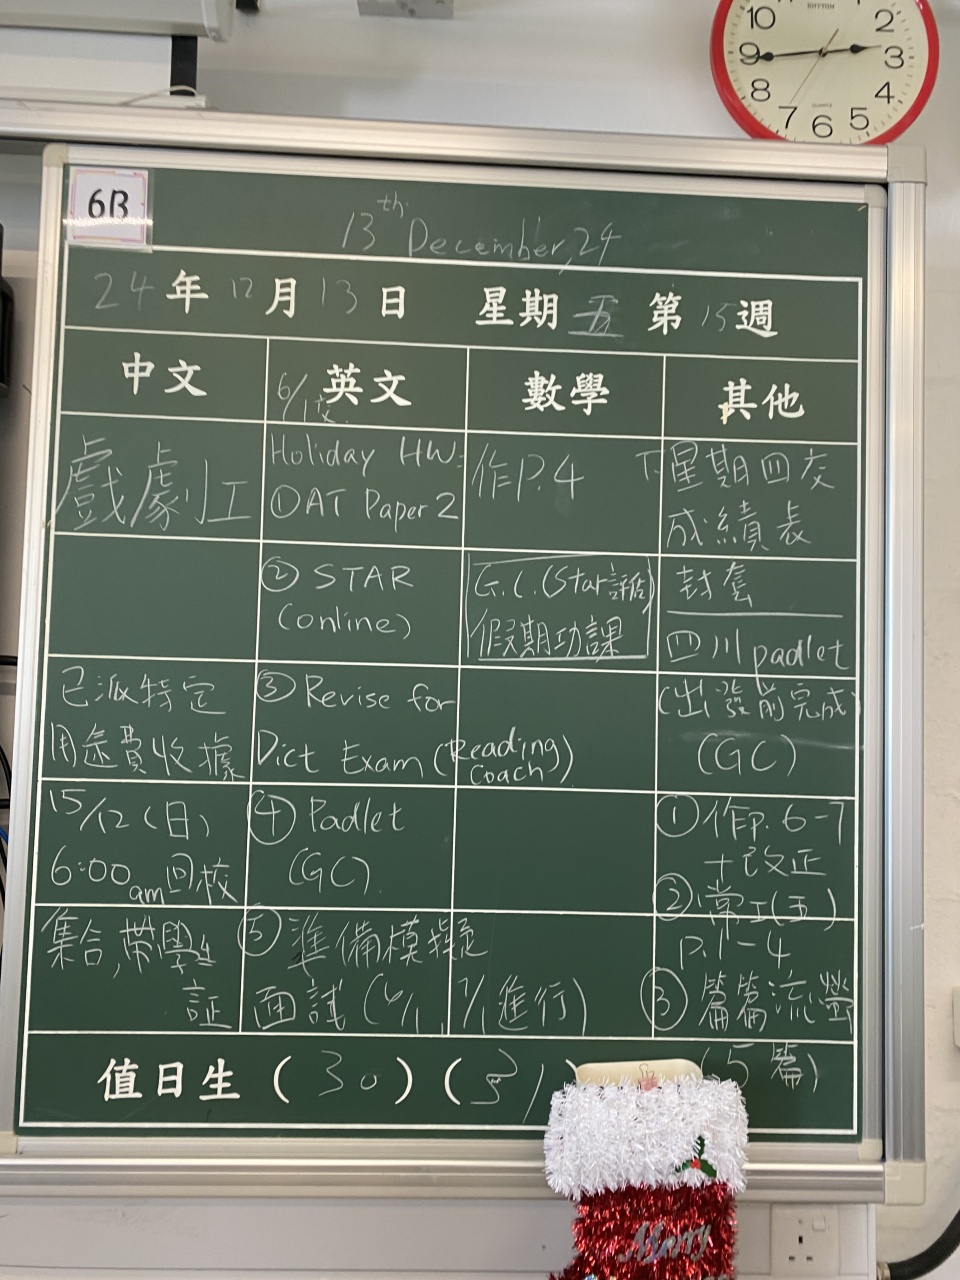 RHYTHM
10 2
9 3
8 4
7 6 5
QUARTZ
6B
13th December, 24
24年12月13日 星期五 第15週
中文
戲劇工
已派特定
用途費收據
15/12(日)
6:00am回校
集合,帶學生
証
6/1交 英文
Holiday HW:
①OAT Paper 2
② STAR
(online)
③ Revise for
Dict Exam (Reading
Coach)
④ Padlet
(GC)
⑤ 準備模擬
面試(6/1, 7/1進行)
數學
作P.4
G.C.(Star評估)
假期功課
其他
下星期四交
成績表
封套
四川padlet
(出發前完成)
(GC)
① 作p.6-7
+改正
② 常工(五)
P.1-4
③ 篇篇流螢
(5篇)
值日生(30)(31)
Merry